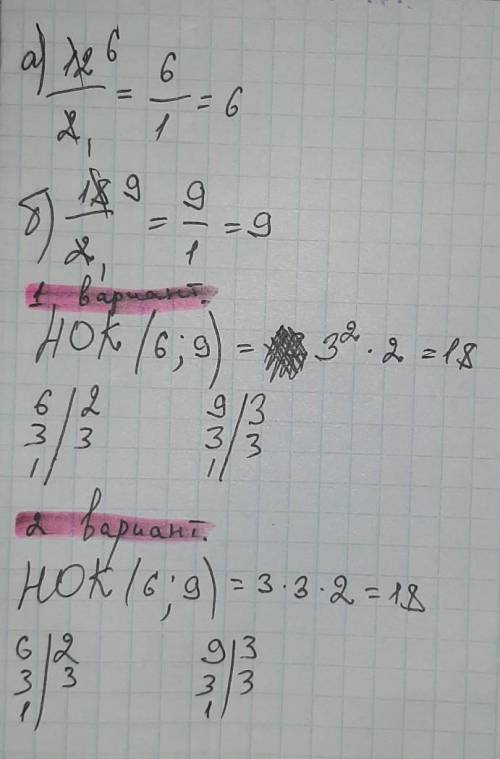 а) 12 6 / 2 1 = 6/1 = 6
б) 18 9 / 2 1 = 9/1 = 9
1 вариант.
НОК (6; 9) = 3² · 2 = 18
6 | 2 9 | 3
3 | 3 3 | 3
1 | 1 |
2 вариант.
НОК (6; 9) = 3 · 3 · 2 = 18
6 | 2 9 | 3
3 | 3 3 | 3
1 | 1 |